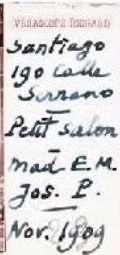 VERASCOPE RICHARD
Santiago
190 Calle
Serrano
Petit Salon
Mad E.M.
Jos. P.
Nov. 1909